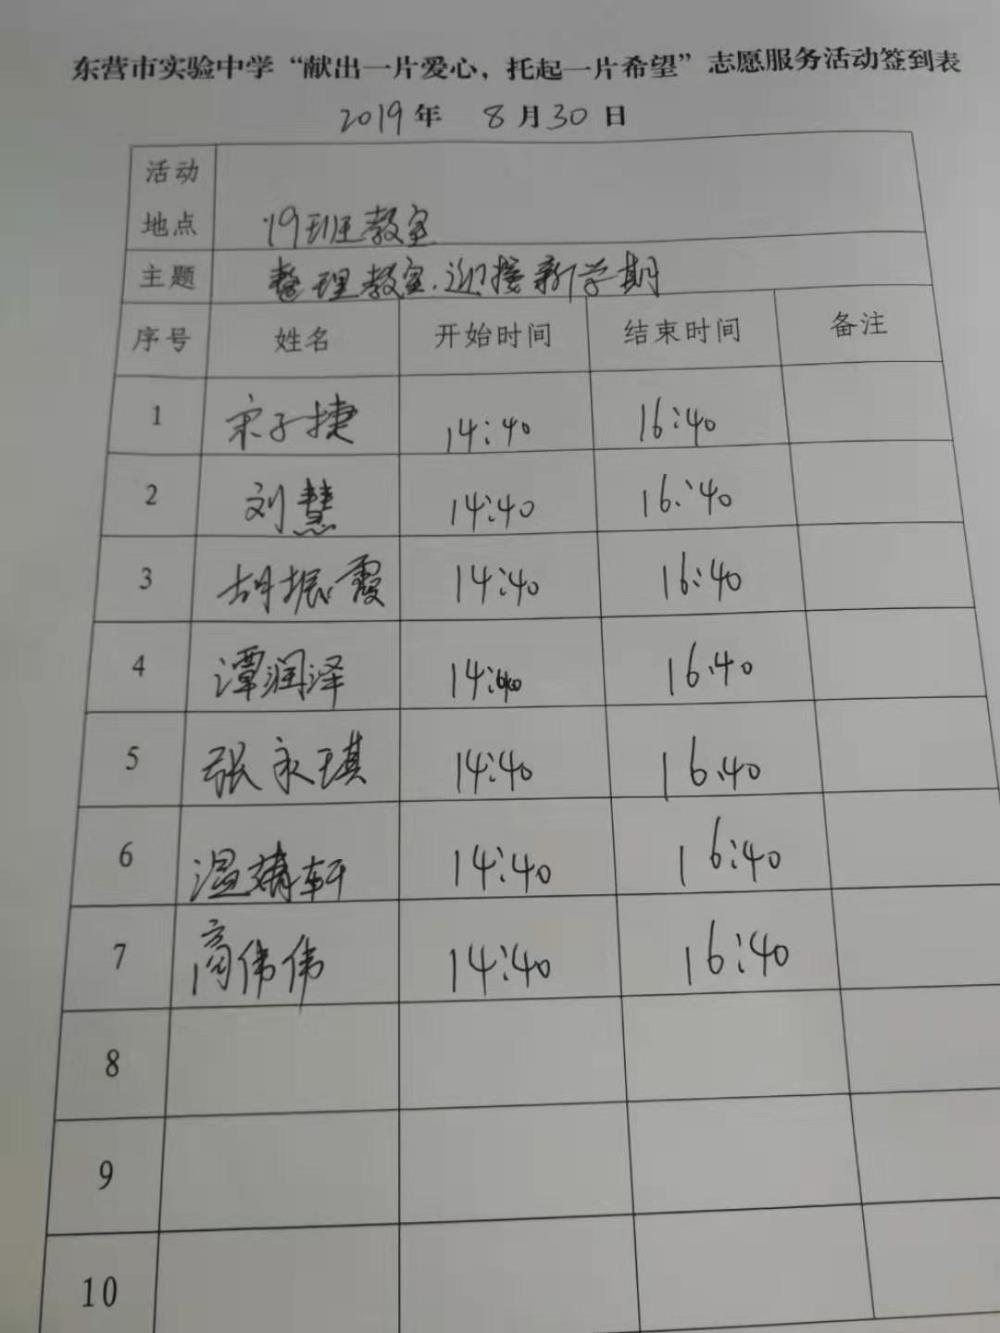 东营市实验中学“献出一片爱心，托起一片希望”志愿服务活动签到表
2019年 8月30日
活动
地点 19班教室
主题 整理教室.迎接新学期
序号 姓名 开始时间 结束时间 备注
1 宋子捷 14:40 16:40
2 刘慧 14:40 16:40
3 胡振霞 14:40 16:40
4 谭润泽 14:40 16:40
5 张永琪 14:40 16:40
6 温婧轩 14:40 16:40
7 商伟伟 14:40 16:40
8
9
10